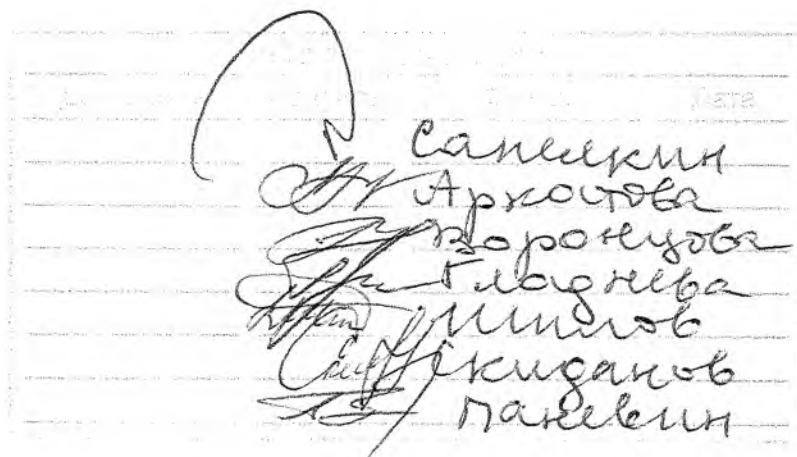 Дата
Сапелкин
Аркатова
Воронцова
Гладнева
Шилов
Скиданов
Паневин